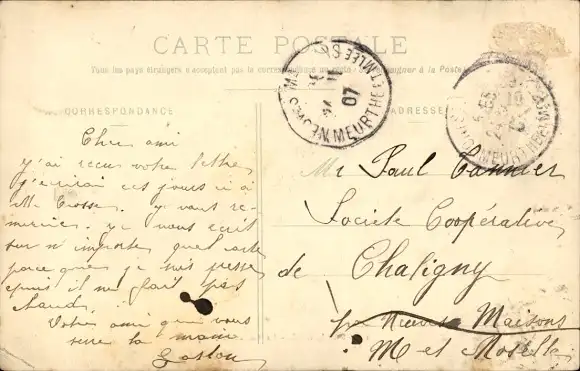 CARTE POSTALE
Tous les pays étrangers n'acceptent pas la correspondance au recto
à la Poste
CORRESPONDANCE
ADRESSE
MEURTHE ET M
07
MEURTHE
Cher ami
j'ai recu votre lettre
j'ecrirai ces jours ci à
Mr je vous re-
mercie. je vous ecrit
sur n'importe quel carte
parce que je suis presse
puis il ne fait pas
chaud.
Votre ami qui vous
serre la main
Gaston
Mr Paul
Societe Coopérative
de Chaligny
par Neuves Maisons
M et Moselle